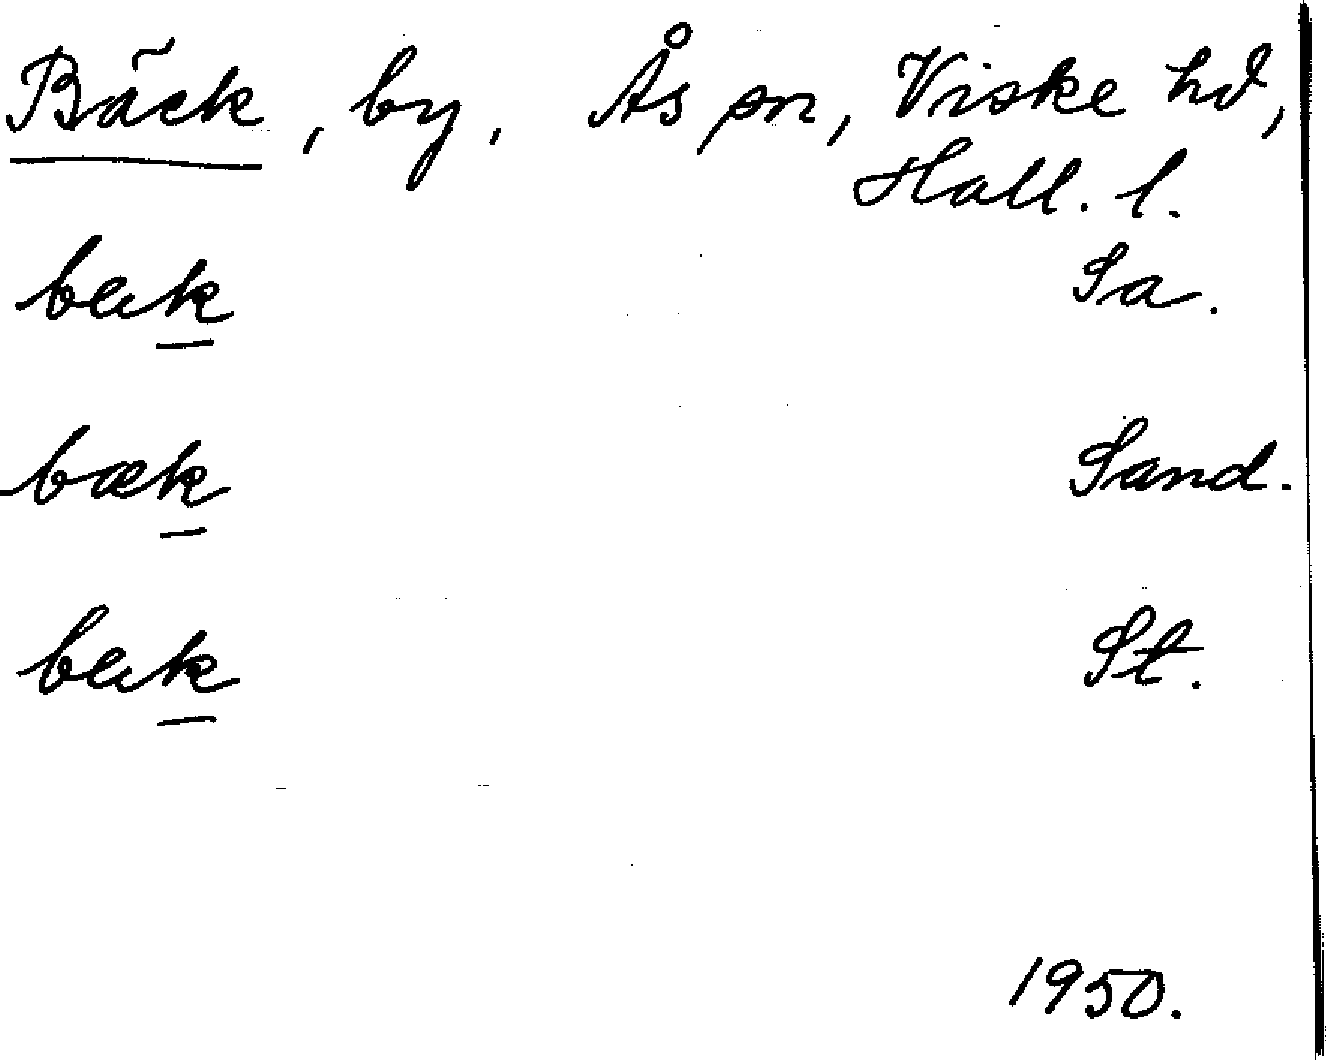 Bäck, by, Ås sn, Viske hd,
Hall. l.
bak Sa.
bæk Sand.
bak St.
1950.